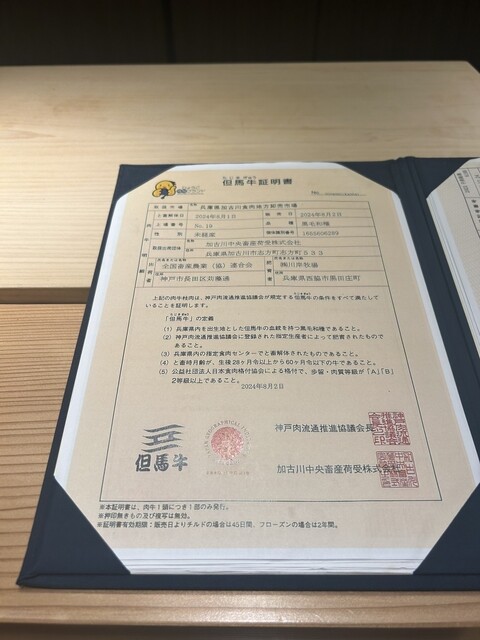 たじまぎゅう
但馬牛証明書
No.
取扱市場 名称 兵庫県加古川食肉地方卸売市場
と畜解体日 2024年8月1日 販売日 2024年8月2日
上場番号 No.18 品種 黒毛和種
性別 未経産 個体識別番号
取扱出荷団体 名称 加古川中央畜産荷受株式会社
住所 兵庫県加古川市志方町志方町533
全国畜産農業(協)連合会 ㈱川岸牧場
住所 神戸市長田区苅藻通 住所 兵庫県西脇市黒田庄町
上記の肉牛枝肉は、神戸肉流通推進協議会が規定する但馬牛の条件をすべて満たして
いることを証明します。
「但馬牛」の定義
(1) 兵庫県内を出生地とした但馬牛の血統を持つ黒毛和種であること。
(2) 神戸肉流通推進協議会に登録された指定生産者によって肥育されたもので
あること。
(3) 兵庫県内の指定食肉センターでと畜解体されたものであること。
(4) と畜時月齢が、生後28ヶ月令以上から60ヶ月令以下の牛であること。
(5) 公益社団法人日本食肉格付協会による格付で、歩留・肉質等級が「A」「B」
2等級以上であること。
2024年8月2日
神戸肉流通推進協議会長
但馬牛
加古川中央畜産荷受株式会社
※本証明書は、肉牛1頭につき1部のみ発行。
※押印無きもの及び複写は無効。
※証明書有効期限:販売日よりチルドの場合は45日間、フローズンの場合は2年間。